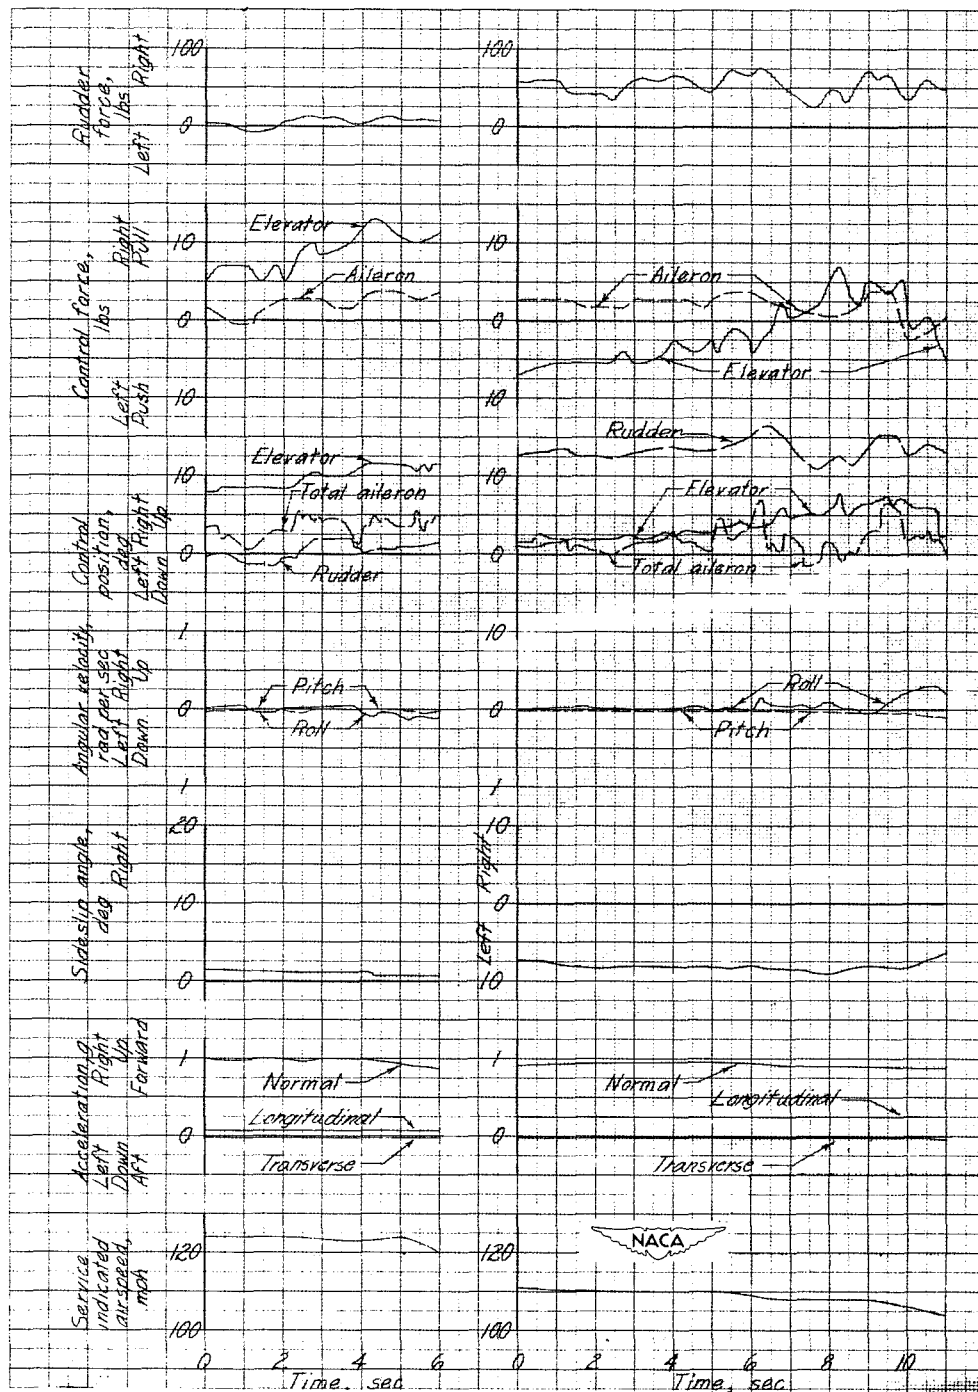 Rudder
force,
lbs
Left Right
100
0
100
0
Control force,
lbs
Left Right
Push Pull
10
0
10
10
0
10
Elevator
Aileron
Aileron
Elevator
Control
position,
deg
Left Right
Down Up
10
0
10
0
Elevator
Total aileron
Rudder
Rudder
Elevator
Total aileron
Angular velocity,
rad per sec
Left Right
Down Up
1
0
1
10
0
1
Pitch
Roll
Roll
Pitch
Sideslip angle,
deg
Right
20
10
0
Left Right
10
0
10
Acceleration, g
Left Right
Down Up
Aft Forward
1
0
1
0
Normal
Longitudinal
Transverse
Normal
Longitudinal
Transverse
Service
indicated
airspeed,
mph
120
100
120
100
NACA
0 2 4 6
Time, sec
0 2 4 6 8 10
Time, sec